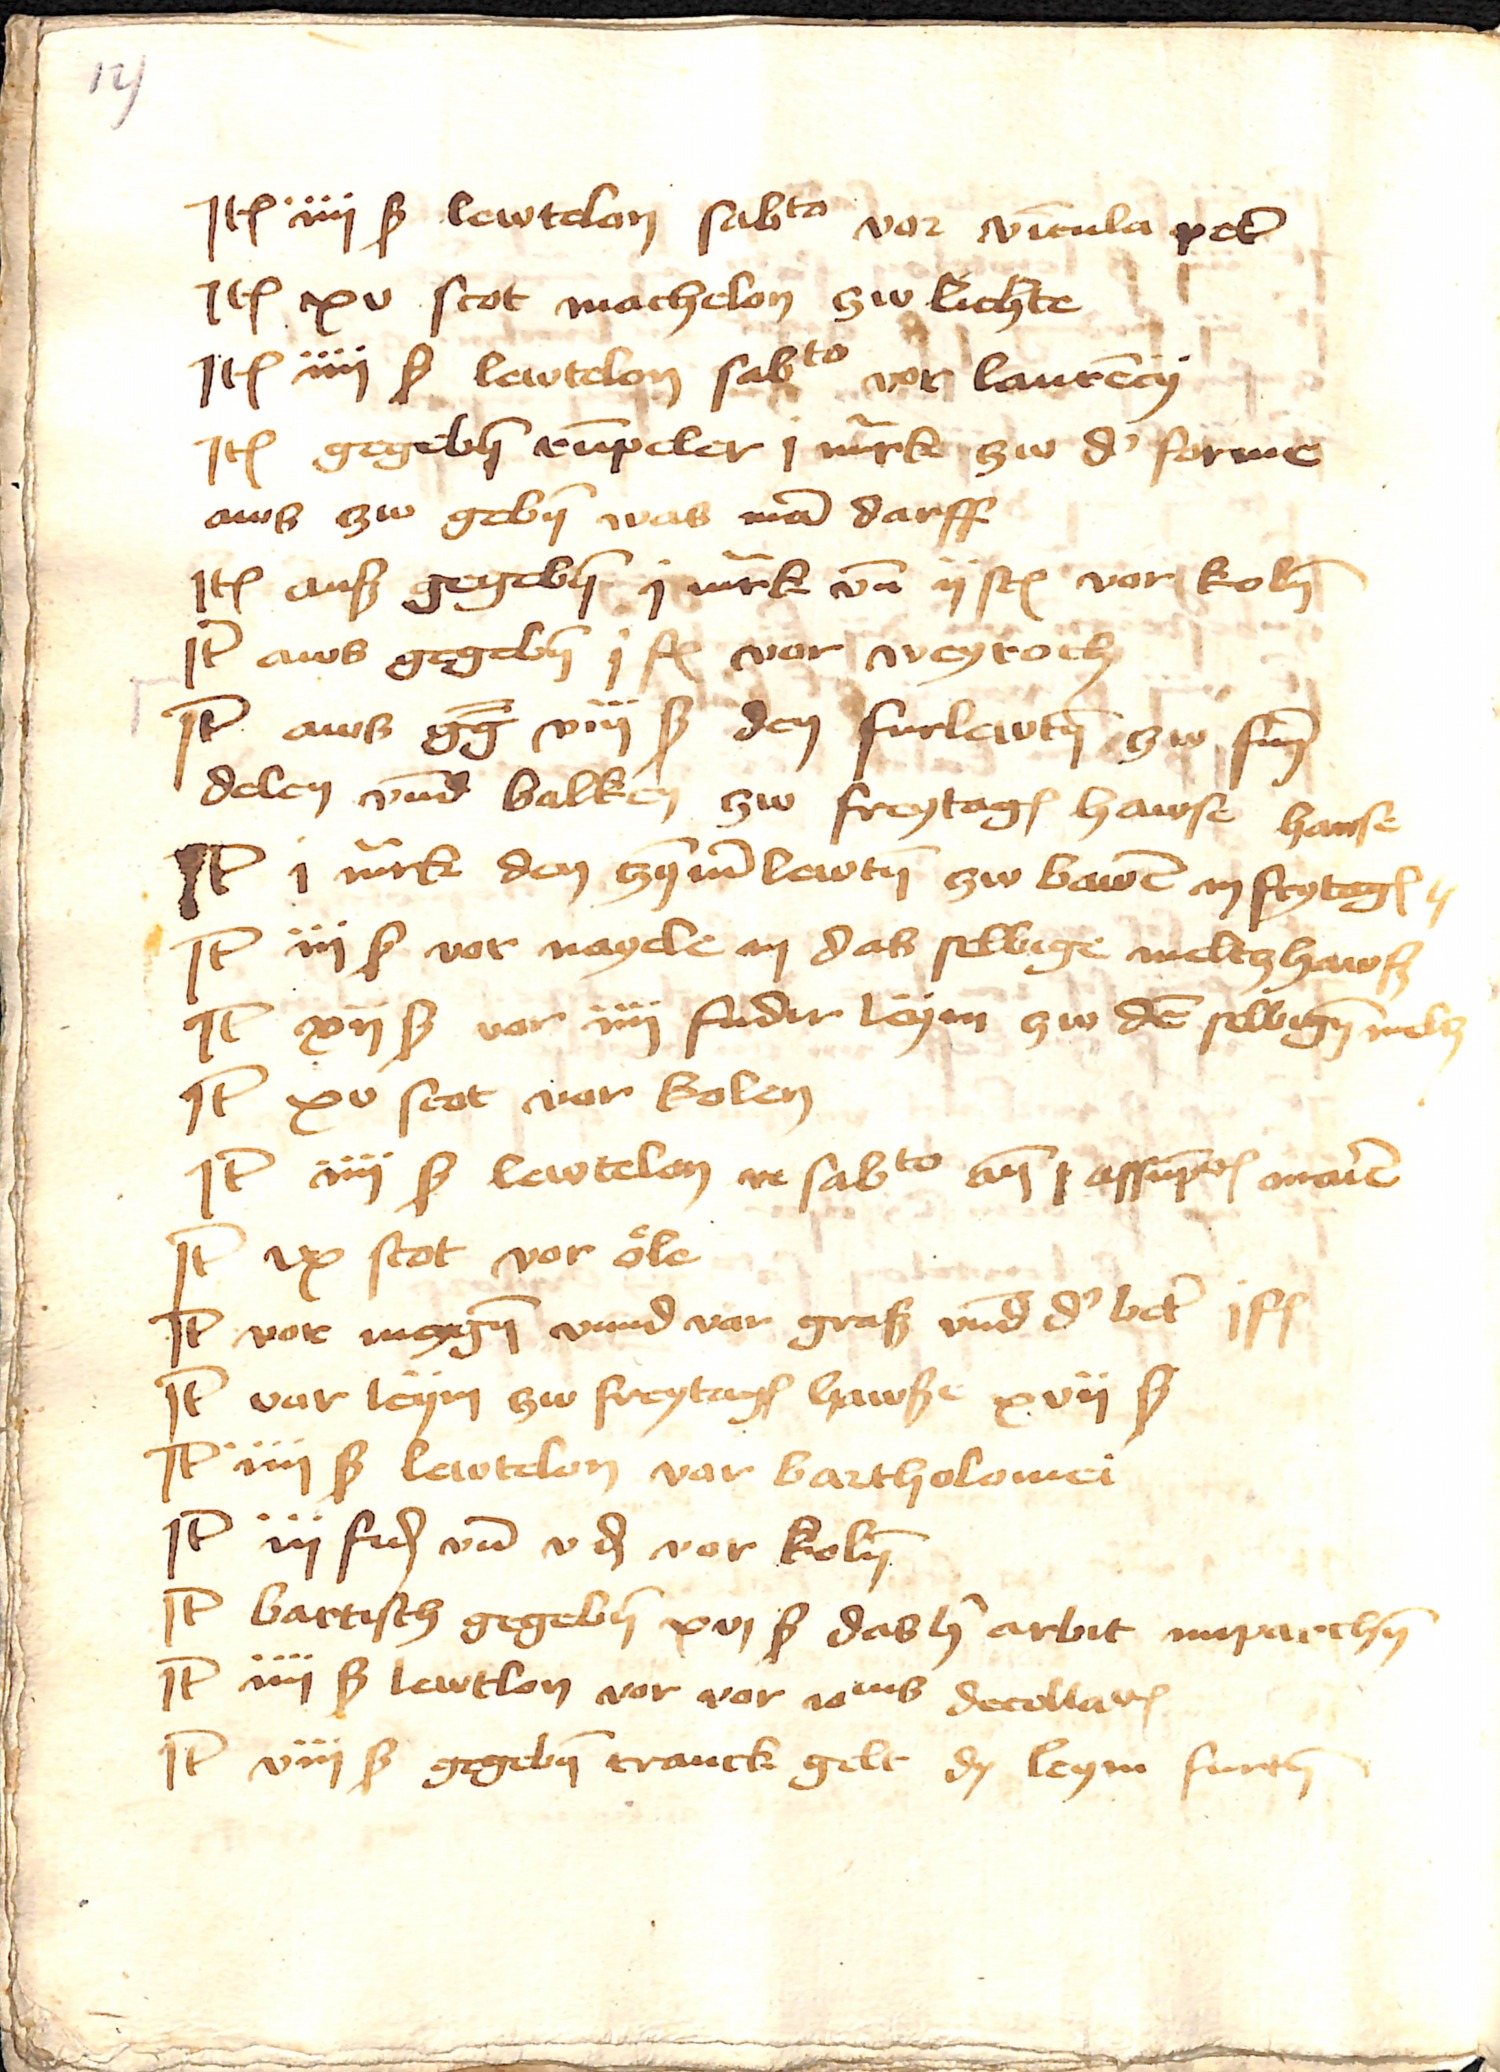 14
Itꝭ iiij ꝭ lewtelon sabto vor vīcula pet̄
Itꝭ xv scot machelon zw lichte
Itꝭ iiij ꝭ lewtelon sabto vor laurēcij
Itꝭ gegebn̄ rūpeler j mr̄k zw d' forme
aws zw gebn̄ was mā darff
Itꝭ auß gegebn̄ j mr̄k vn̄ ij scꝭ vor koln̄
It̄ aws gegebn̄ j fꝭ vor weyroch
It̄ aws gḡ viij ꝭ den furlewtn̄ zw
delen vn̄d balken zw freytagꝭ hawse hawse
It̄ j mr̄k den zȳm̄lewtn̄ zw bawē in freytagꝭ
It̄ iij ꝭ vor nayele in das selbige meltzhawß
It̄ xij ꝭ vor iiij fuder leym zw dē selbign̄ meltz
It̄ xv scot vor kolen
It̄ iiij ꝭ lewtelon sabto an̄ assūpꝭ marie
It̄ ix scot vor öle
It̄ vor meygn̄ vnnd vor graß vn̄d d' bet̄
It̄ vor leym zw freytagꝭ hawße xvij ꝭ
It̄ iiij ꝭ lewtelon vor bartholomei
It̄ iij fud vn̄ v d vor koln̄
It̄ bartisch gegebn̄ xvj ꝭ das h̄ arbit
It̄ iiij ꝭ lewtlon vor vor decollacꝭ
It̄ viij ꝭ gegebn̄ tranck gelt dy leym furtn̄